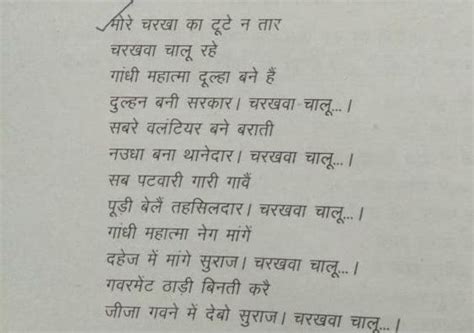 मोरे चरखा का टूटे न तार
चरखवा चालू रहे
गांधी महात्मा दूल्हा बने हैं
दुल्हन बनी सरकार। चरखवा चालू...।
सबरे वलंटियर बने बराती
नउधा बना थानेदार। चरखवा चालू...।
सब पटवारी गारी गावैं
पूड़ी बेलैं तहसिलदार। चरखवा चालू...।
गांधी महात्मा नेग मांगें
दहेज में मांगे सुराज। चरखवा चालू...।
गवरमेंट ठाड़ी बिनती करै
जीजा गवने में देबो सुराज। चरखवा चालू...।